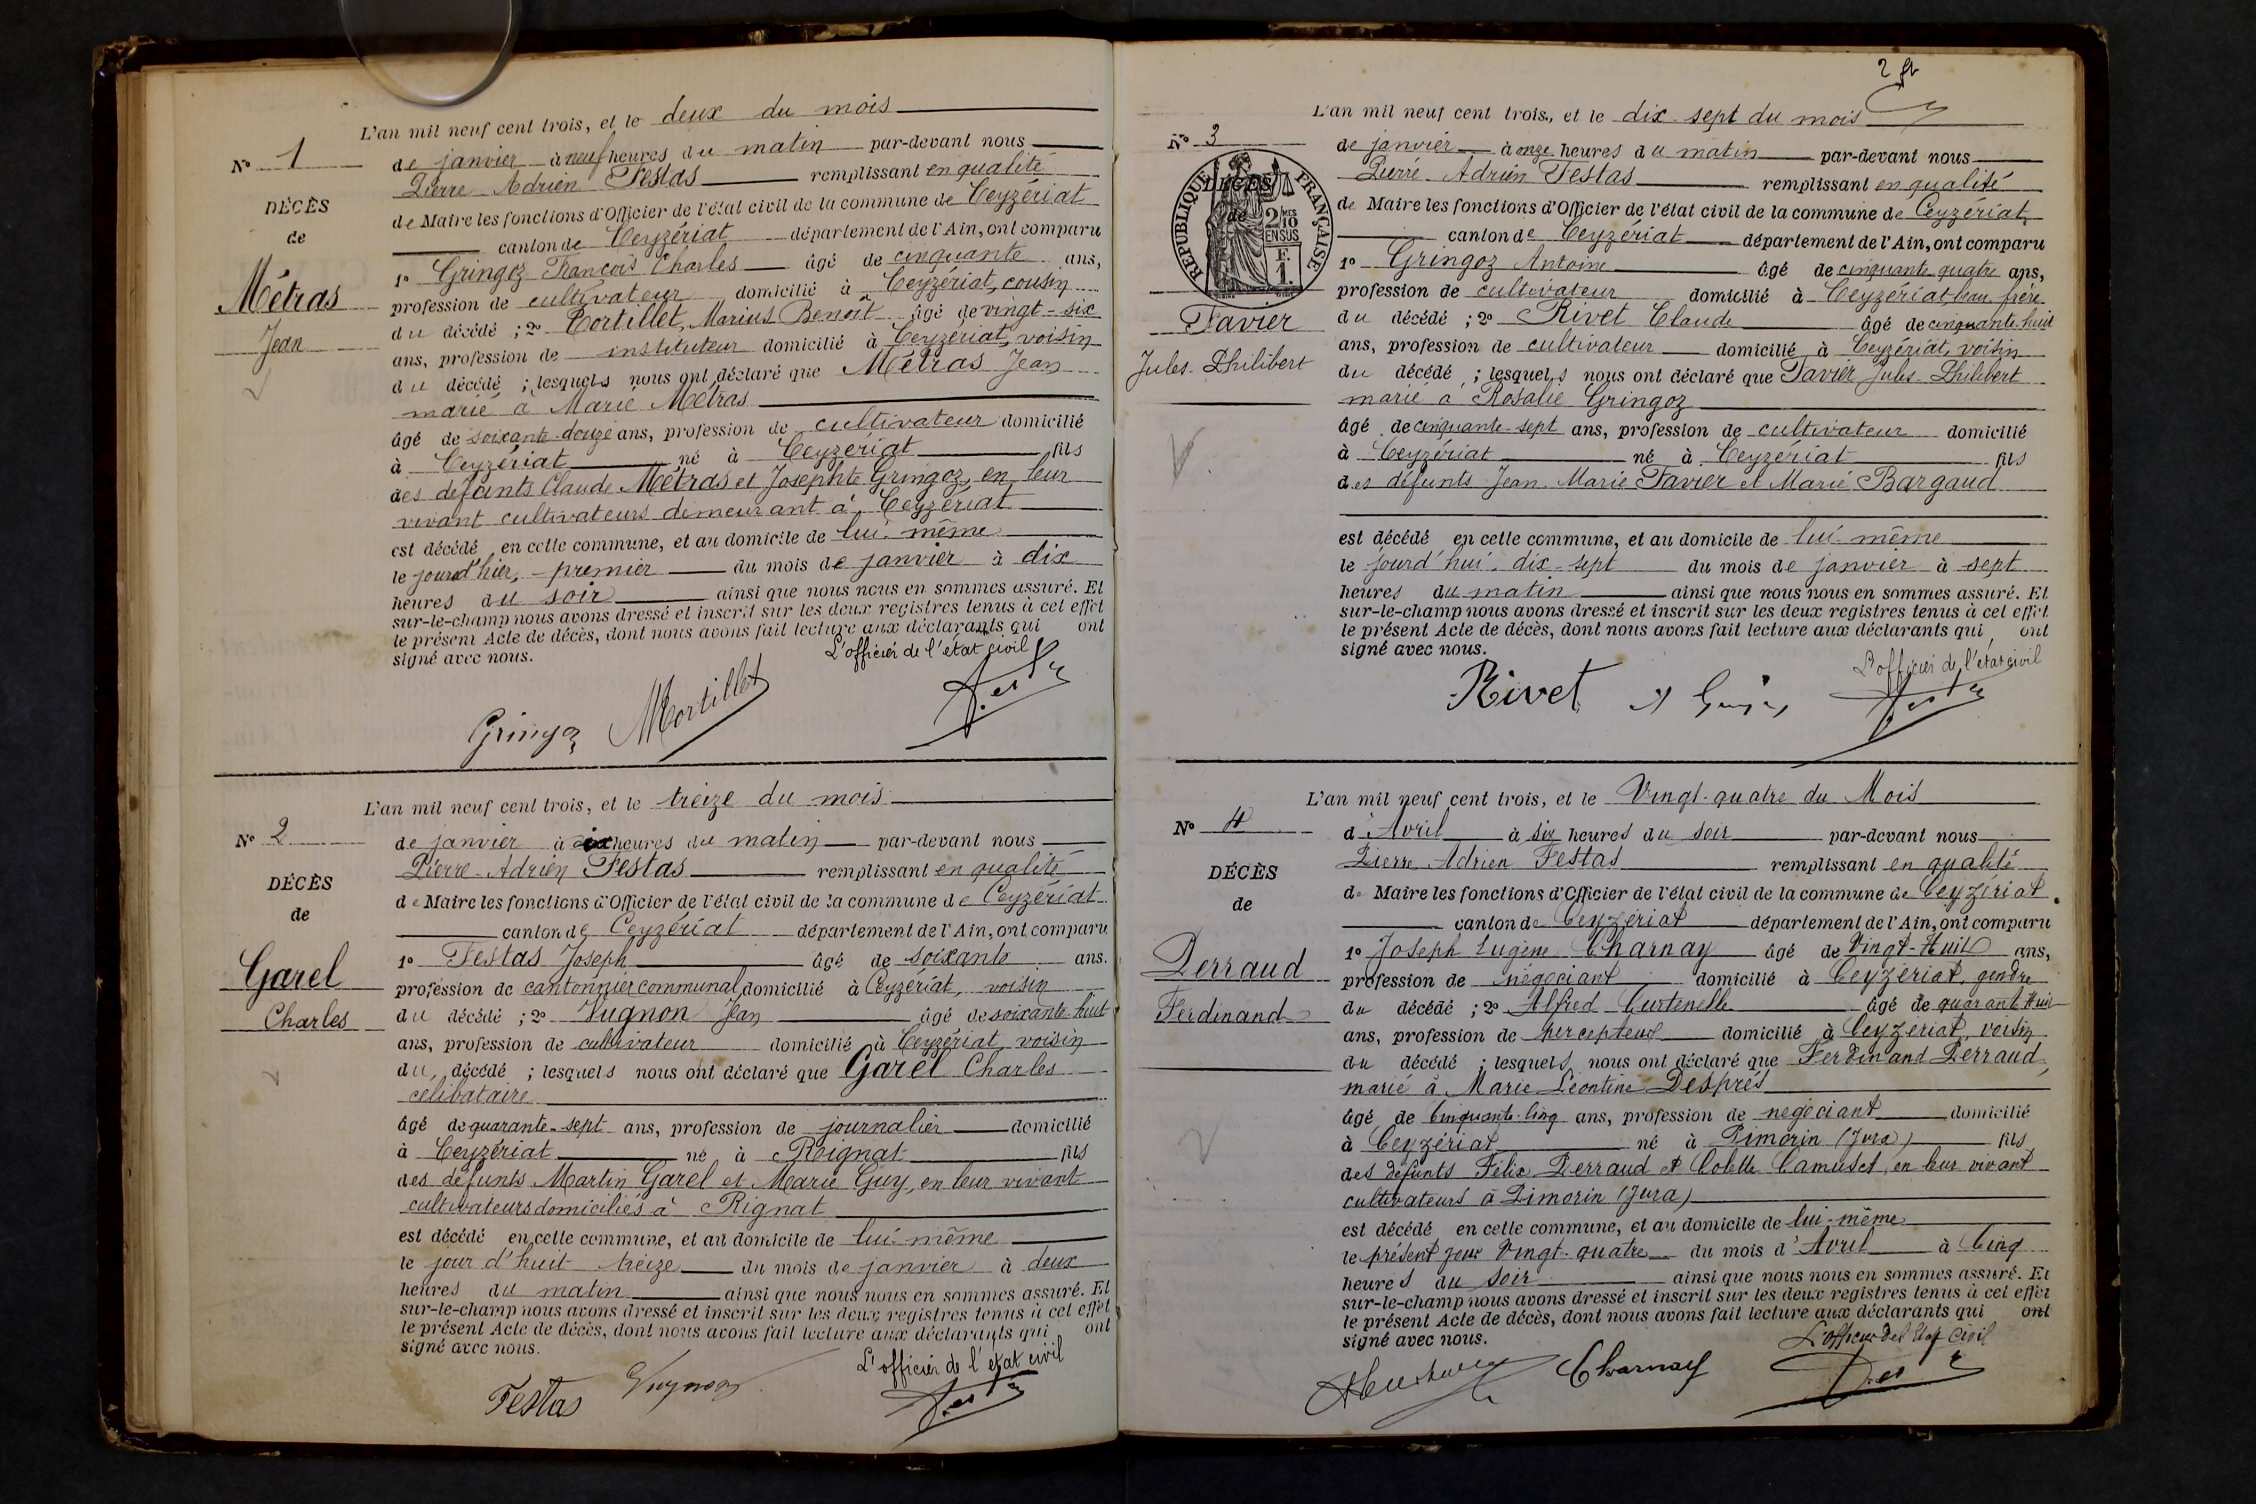 L'an mil neuf cent trois, et le deux du mois
N° 1
de janvier à neuf heures du matin par-devant nous
Pierre Adrien Festas remplissant en qualité
DÉCÈS
de Maire les fonctions d'Officier de l'état civil de la commune de Ceyzériat
de
canton de Ceyzériat département de l'Ain, ont comparu
1° Gringoz François Charles âgé de cinquante ans,
Métras
profession de cultivateur domicilié à Ceyzériat, cousin
Jean
du décédé ; 2° Tortillet, Marius Benoît âgé de vingt-six
ans, profession de instituteur domicilié à Ceyzériat, voisin
du décédé ; lesquels nous ont déclaré que Métras Jean
marié à Marie Métras
âgé de soixante-douze ans, profession de cultivateur domicilié
à Ceyzériat né à Ceyzériat fils
des défunts Claude Métras et Josephte Gringoz, en leur
vivant cultivateurs demeurant à Ceyzériat
est décédé en cette commune, et au domicile de lui-même
le jour d'hier, premier du mois de janvier à dix
heures du soir ainsi que nous nous en sommes assuré. Et
sur-le-champ nous avons dressé et inscrit sur les deux registres tenus à cet effet
le présent Acte de décès, dont nous avons fait lecture aux déclarants qui ont
signé avec nous.
L'officier de l'état civil
Gringoz Mortillet
L'an mil neuf cent trois, et le treize du mois
N° 2
de janvier à heures du matin par-devant nous
Pierre-Adrien Festas remplissant en qualité
DÉCÈS
de Maire les fonctions d'Officier de l'état civil de la commune de Ceyzériat
de
canton de Ceyzériat département de l'Ain, ont comparu
1° Festas Joseph âgé de soixante ans.
Garel
profession de cantonnier communal, domicilié à Ceyzériat, voisin
Charles
du décédé ; 2° Vugnon Jean âgé de soixante-huit
ans, profession de cultivateur domicilié à Ceyzériat, voisin
du décédé ; lesquels nous ont déclaré que Garel Charles
célibataire
âgé de quarante-sept ans, profession de journalier domicilié
à Ceyzériat né à Rignat fils
des défunts Martin Garel et Marie Guy, en leur vivant
cultivateurs domiciliés à Rignat
est décédé en cette commune, et au domicile de lui-même
le jour d'huit treize du mois de janvier à deux
heures du matin ainsi que nous nous en sommes assuré. Et
sur-le-champ nous avons dressé et inscrit sur les deux registres tenus à cet effet
le présent Acte de décès, dont nous avons fait lecture aux déclarants qui ont
signé avec nous.
L'officier de l'état civil
Festas Vugnon
2
L'an mil neuf cent trois, et le dix-sept du mois
N° 3
de janvier à onze heures du matin par-devant nous
Pierre Adrien Festas remplissant en qualité
RÉPUBLIQUE FRANÇAISE
DÉCÈS
de
2 MES
10
EN SUS
F.
1.
de Maire les fonctions d'Officier de l'état civil de la commune de Ceyzériat,
canton de Ceyzériat département de l'Ain, ont comparu
1° Gringoz Antoine âgé de cinquante quatre ans,
profession de cultivateur domicilié à Ceyzériat, beau frère
Favier
du décédé ; 2° Rivet Claude âgé de cinquante-huit
ans, profession de cultivateur domicilié à Ceyzériat, voisin
Jules-Philibert
du décédé ; lesquels nous ont déclaré que Favier Jules-Philibert
marié à Rosalie Gringoz
âgé de cinquante-sept ans, profession de cultivateur domicilié
à Ceyzériat né à Ceyzériat fils
des défunts Jean-Marie Favier et Marie Bargaud
est décédé en cette commune, et au domicile de lui-même
le jourd'hui dix-sept du mois de janvier à sept
heures du matin ainsi que nous nous en sommes assuré. Et
sur-le-champ nous avons dressé et inscrit sur les deux registres tenus à cet effet
le présent Acte de décès, dont nous avons fait lecture aux déclarants qui ont
signé avec nous.
L'officier de l'état civil
Rivet
L'an mil neuf cent trois, et le Vingt-quatre du Mois
N° 4
d'Avril à six heures du soir par-devant nous
Pierre Adrien Festas remplissant en qualité
DÉCÈS
de Maire les fonctions d'Officier de l'état civil de la commune de Ceyzériat.
de
canton de Ceyzériat département de l'Ain, ont comparu
1° Joseph Eugène Charnay âgé de Vingt-Huit ans,
Perraud
profession de négociant domicilié à Ceyzériat, gendre
Ferdinand
du décédé ; 2° Alfred Curtenelle âgé de quarante Huit
ans, profession de percepteur domicilié à Ceyzériat, voisin
du décédé ; lesquels nous ont déclaré que Ferdinand Perraud,
marié à Marie Léontine Desprès
âgé de Cinquante-Cinq ans, profession de négociant domicilié
à Ceyzériat né à Pimorin (Jura) fils
des défunts Félix Perraud et Colette Camuset, en leur vivant
cultivateurs à Pimorin (Jura)
est décédé en cette commune, et au domicile de lui-même
le présent jour Vingt-quatre du mois d'Avril à Cinq
heures du soir ainsi que nous nous en sommes assuré. Et
sur-le-champ nous avons dressé et inscrit sur les deux registres tenus à cet effet
le présent Acte de décès, dont nous avons fait lecture aux déclarants qui ont
signé avec nous.
L'officier de l'Etat Civil
Charnay